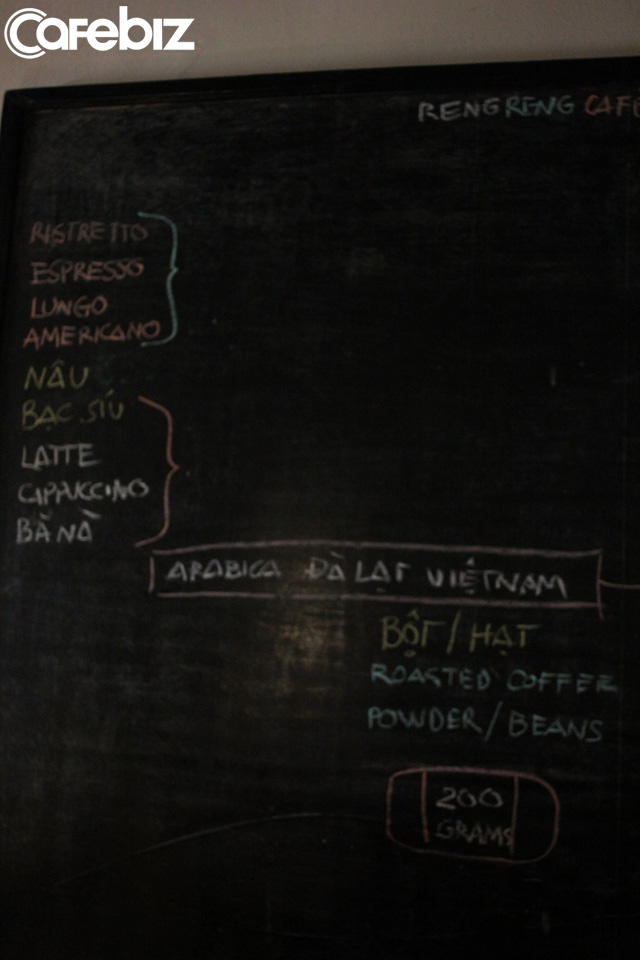 Cafebiz
RENGRENG CAFE
RISTRETTO
ESPRESSO
LUNGO
AMERICANO
NÂU
BẠC SÍU
LATTE
CAPPUCCINO
BÀ NÀ
ARABICA ĐÀ LẠT VIỆTNAM
BỘT/HẠT
ROASTED COFFEE
POWDER/BEANS
200
GRAMS